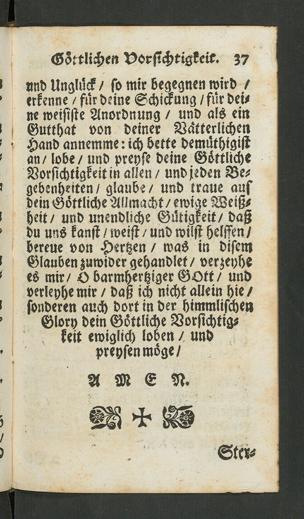 Göttlichen Vorsichtigkeit. 37
und Unglück / so mir begegnen wird /
erkenne / für deine Schickung / für dei-
ne weisiste Anordnung / und als ein
Gutthat von deiner Vätterlichen
Hand annemme: ich bette demüthigist
an / lobe / und preyse deine Göttliche
Vorsichtigkeit in allen / und jeden Be-
gebenheiten / glaube / und traue auf
dein Göttliche Allmacht / ewige Weiß-
heit / und unendliche Gütigkeit / daß
du uns kanst / weist / und wilst helffen /
bereue von Hertzen / was in disem
Glauben zuwider gehandlet / verzeyhe
es mir / O barmhertziger GOtt / und
verleyhe mir / daß ich nicht allein hie /
sonderen auch dort in der himmlischen
Glory dein Göttliche Vorsichtig-
keit ewiglich loben / und
preysen möge /
AMEN.
Ster-